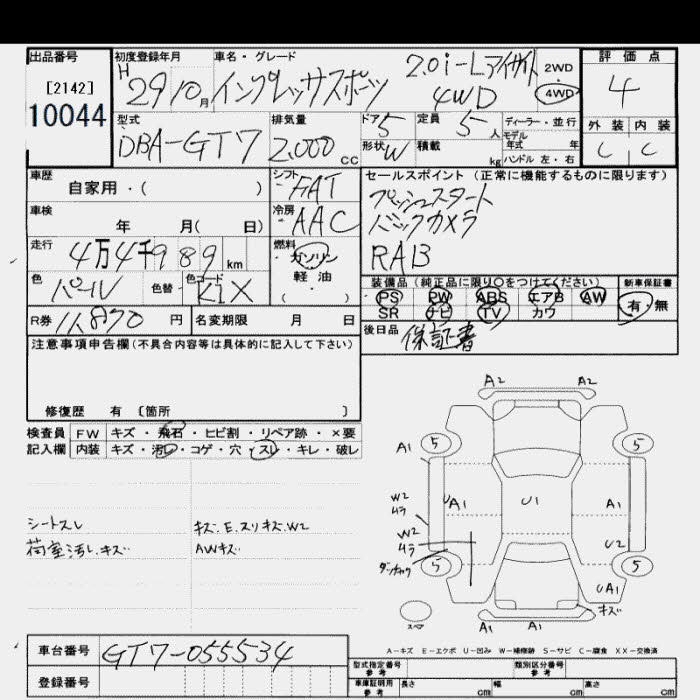 出品番号
[2142]
10044
初度登録年月
H 29 10月
車名・グレード
インプレッサスポーツ
2.0i-Lアイサイト
4WD
2WD
4WD
評価点
4
外装 内装
C C
型式
DBA-GT7
排気量
2,000 CC
ドア 5
形状 W
定員 5 人
積載 kg
ディーラー・並行
モデル
年式 年
ハンドル 左・右
車歴
自家用・( )
シフト FAT
冷房 AAC
セールスポイント (正常に機能するものに限ります)
プッシュスタート
バックカメラ
RAB
車検
年 月( 日)
走行
4万4千989 km
燃料
ガソリン
軽・油
( )
色
パール
色替
色コード
K1X
装備品 (純正品に限り○をつけてください)
PS PW ABS エアB AW
SR ナビ TV カワ
新車保証書
有・無
R券 11,870 円
名変期限 月 日
後日品
保証書
注意事項申告欄(不具合内容等は具体的に記入して下さい)
修復歴 有 〔箇所 〕
検査員
記入欄
FW キズ・飛石・ヒビ割・リペア跡・×要
内装 キズ・汚レ・コゲ・穴・スレ・キレ・破レ
シートスレ
荷室汚レ.キズ
キズ.E.スリキズ.W2
AWキズ
A2 A2
5 5
A1
W2
ムラ
UA1 U1 A1
W2
ムラ
U2
5 5
UA1
キズ
スペア
A1 A1
A-キズ E-エクボ U-凹み W-補修跡 S-サビ C-腐食 XX-交換済
車台番号 GT7-055534
登録番号
型式指定番号
参考
類別区分番号
参考
車庫証明用
参考
長さ cm 幅 cm 高さ cm